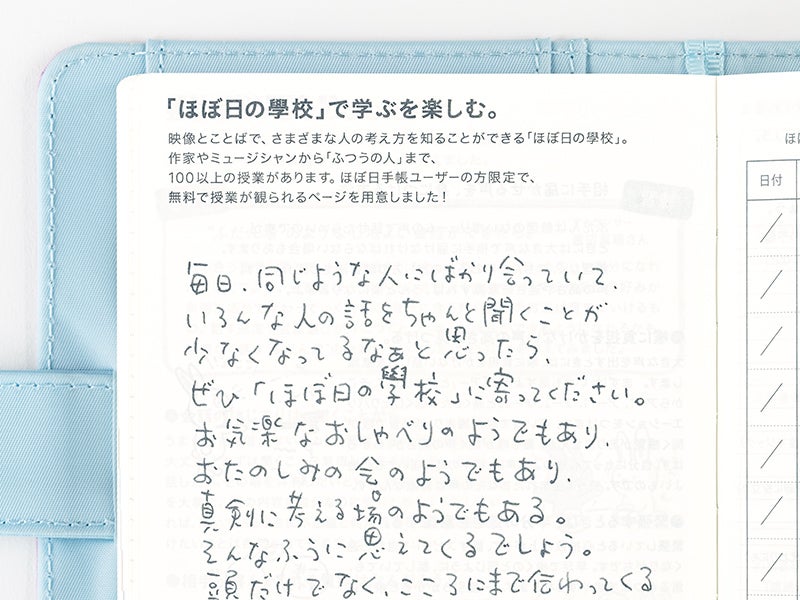 「ほぼ日の學校」で学ぶを楽しむ。
映像とことばで、さまざまな人の考え方を知ることができる「ほぼ日の學校」。
作家やミュージシャンから「ふつうの人」まで、
100以上の授業があります。ほぼ日手帳ユーザーの方限定で、
無料で授業が観られるページを用意しました!
毎日、同じような人にばかり会っていて、
いろんな人の話をちゃんと聞くことが
少なくなってるなぁと思ったら、
ぜひ「ほぼ日の學校」に寄ってください。
お気楽なおしゃべりのようでもあり、
おたのしみの会のようでもあり、
真剣に考える場のようでもある。
そんなふうに思えてくるでしょう。
頭だけでなく、こころにまで伝わってくる
ほ
日付